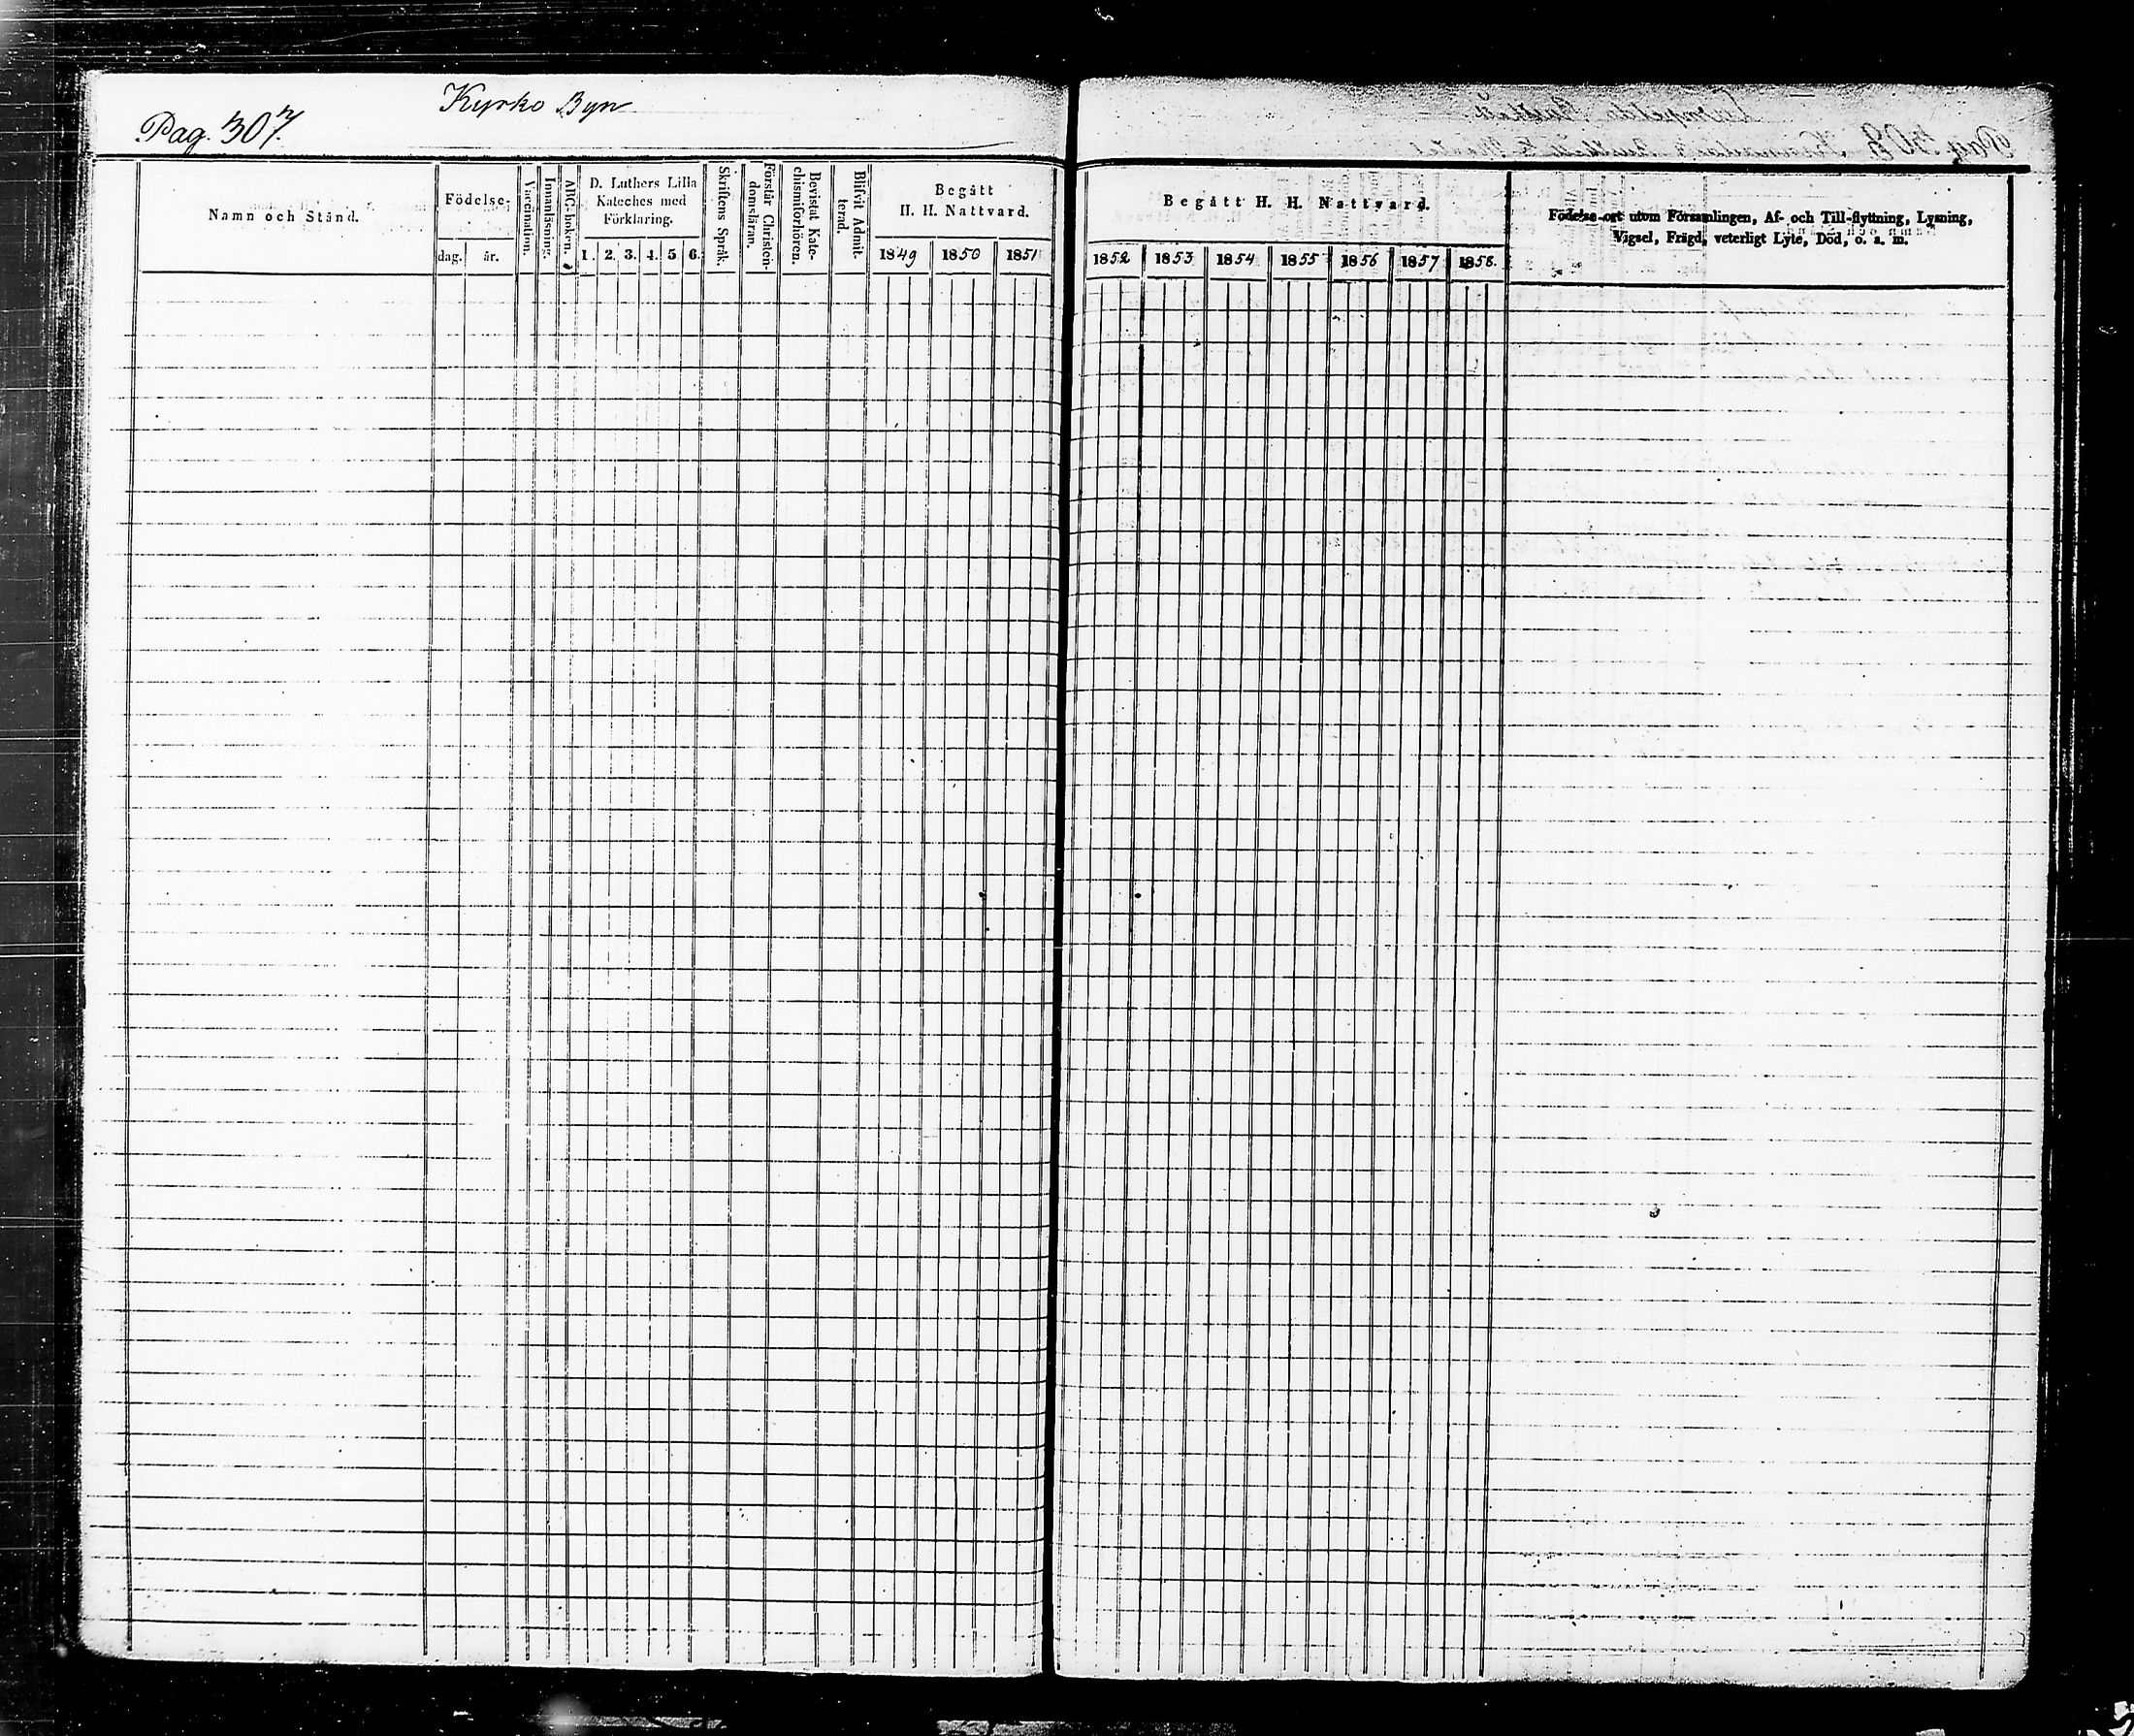 Kyrko Byn
Pag. 307.
Namn och Stånd.
Födelse-
dag.
år.
Vaccination.
Innanläsning.
ABC-boken.
D. Luthers Lilla
Kateches med
Förklaring.
1. 2. 3. 4. 5 6.
Skriftens Språk.
Förstår Christen-
domsläran.
Bevistat Kate-
chismiförhören.
Blifvit Admit-
terad.
Begått
H. H. Nattvard.
1849 1850 1851
Begått H. H. Nattvard.
1852 1853 1854 1855 1856 1857 1858.
Födelse-ort utom Församlingen, Af- och Till-flyttning, Lysning,
Vigsel, Frägd, veterligt Lyte, Död, o. s. m.